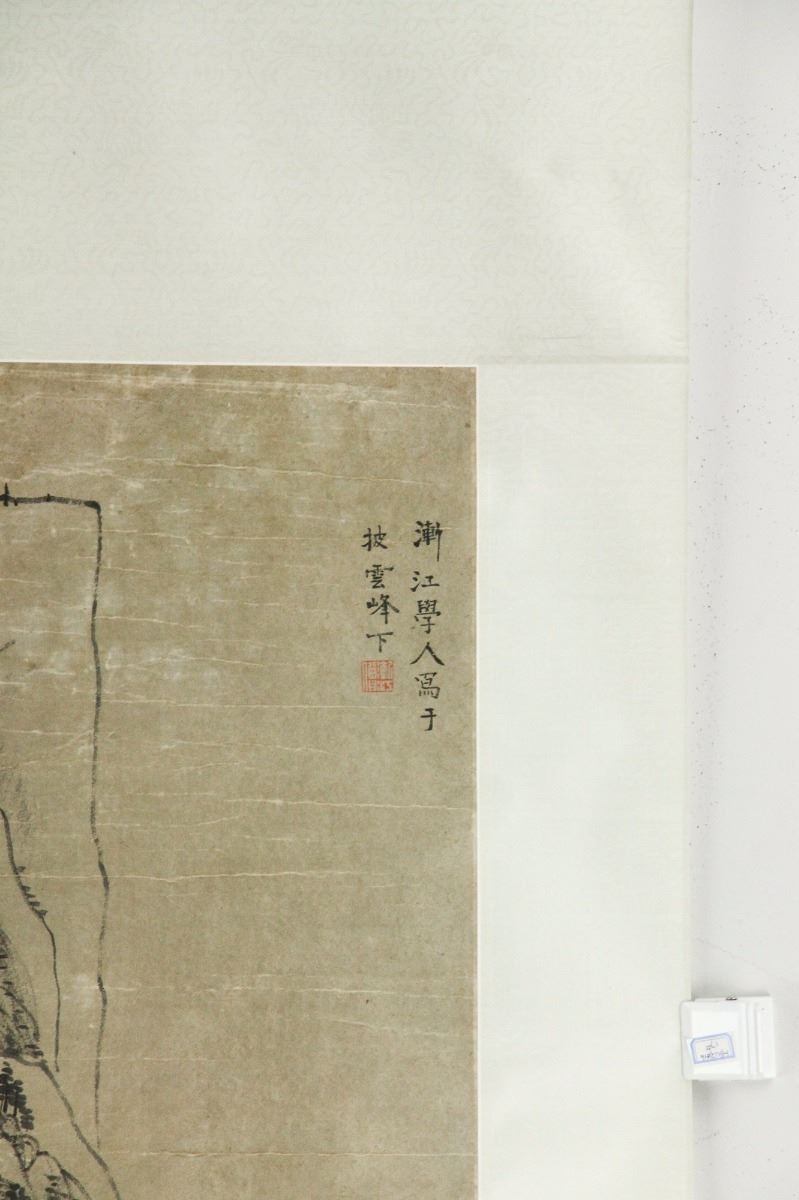 漸江學人寫于
披雲峰下